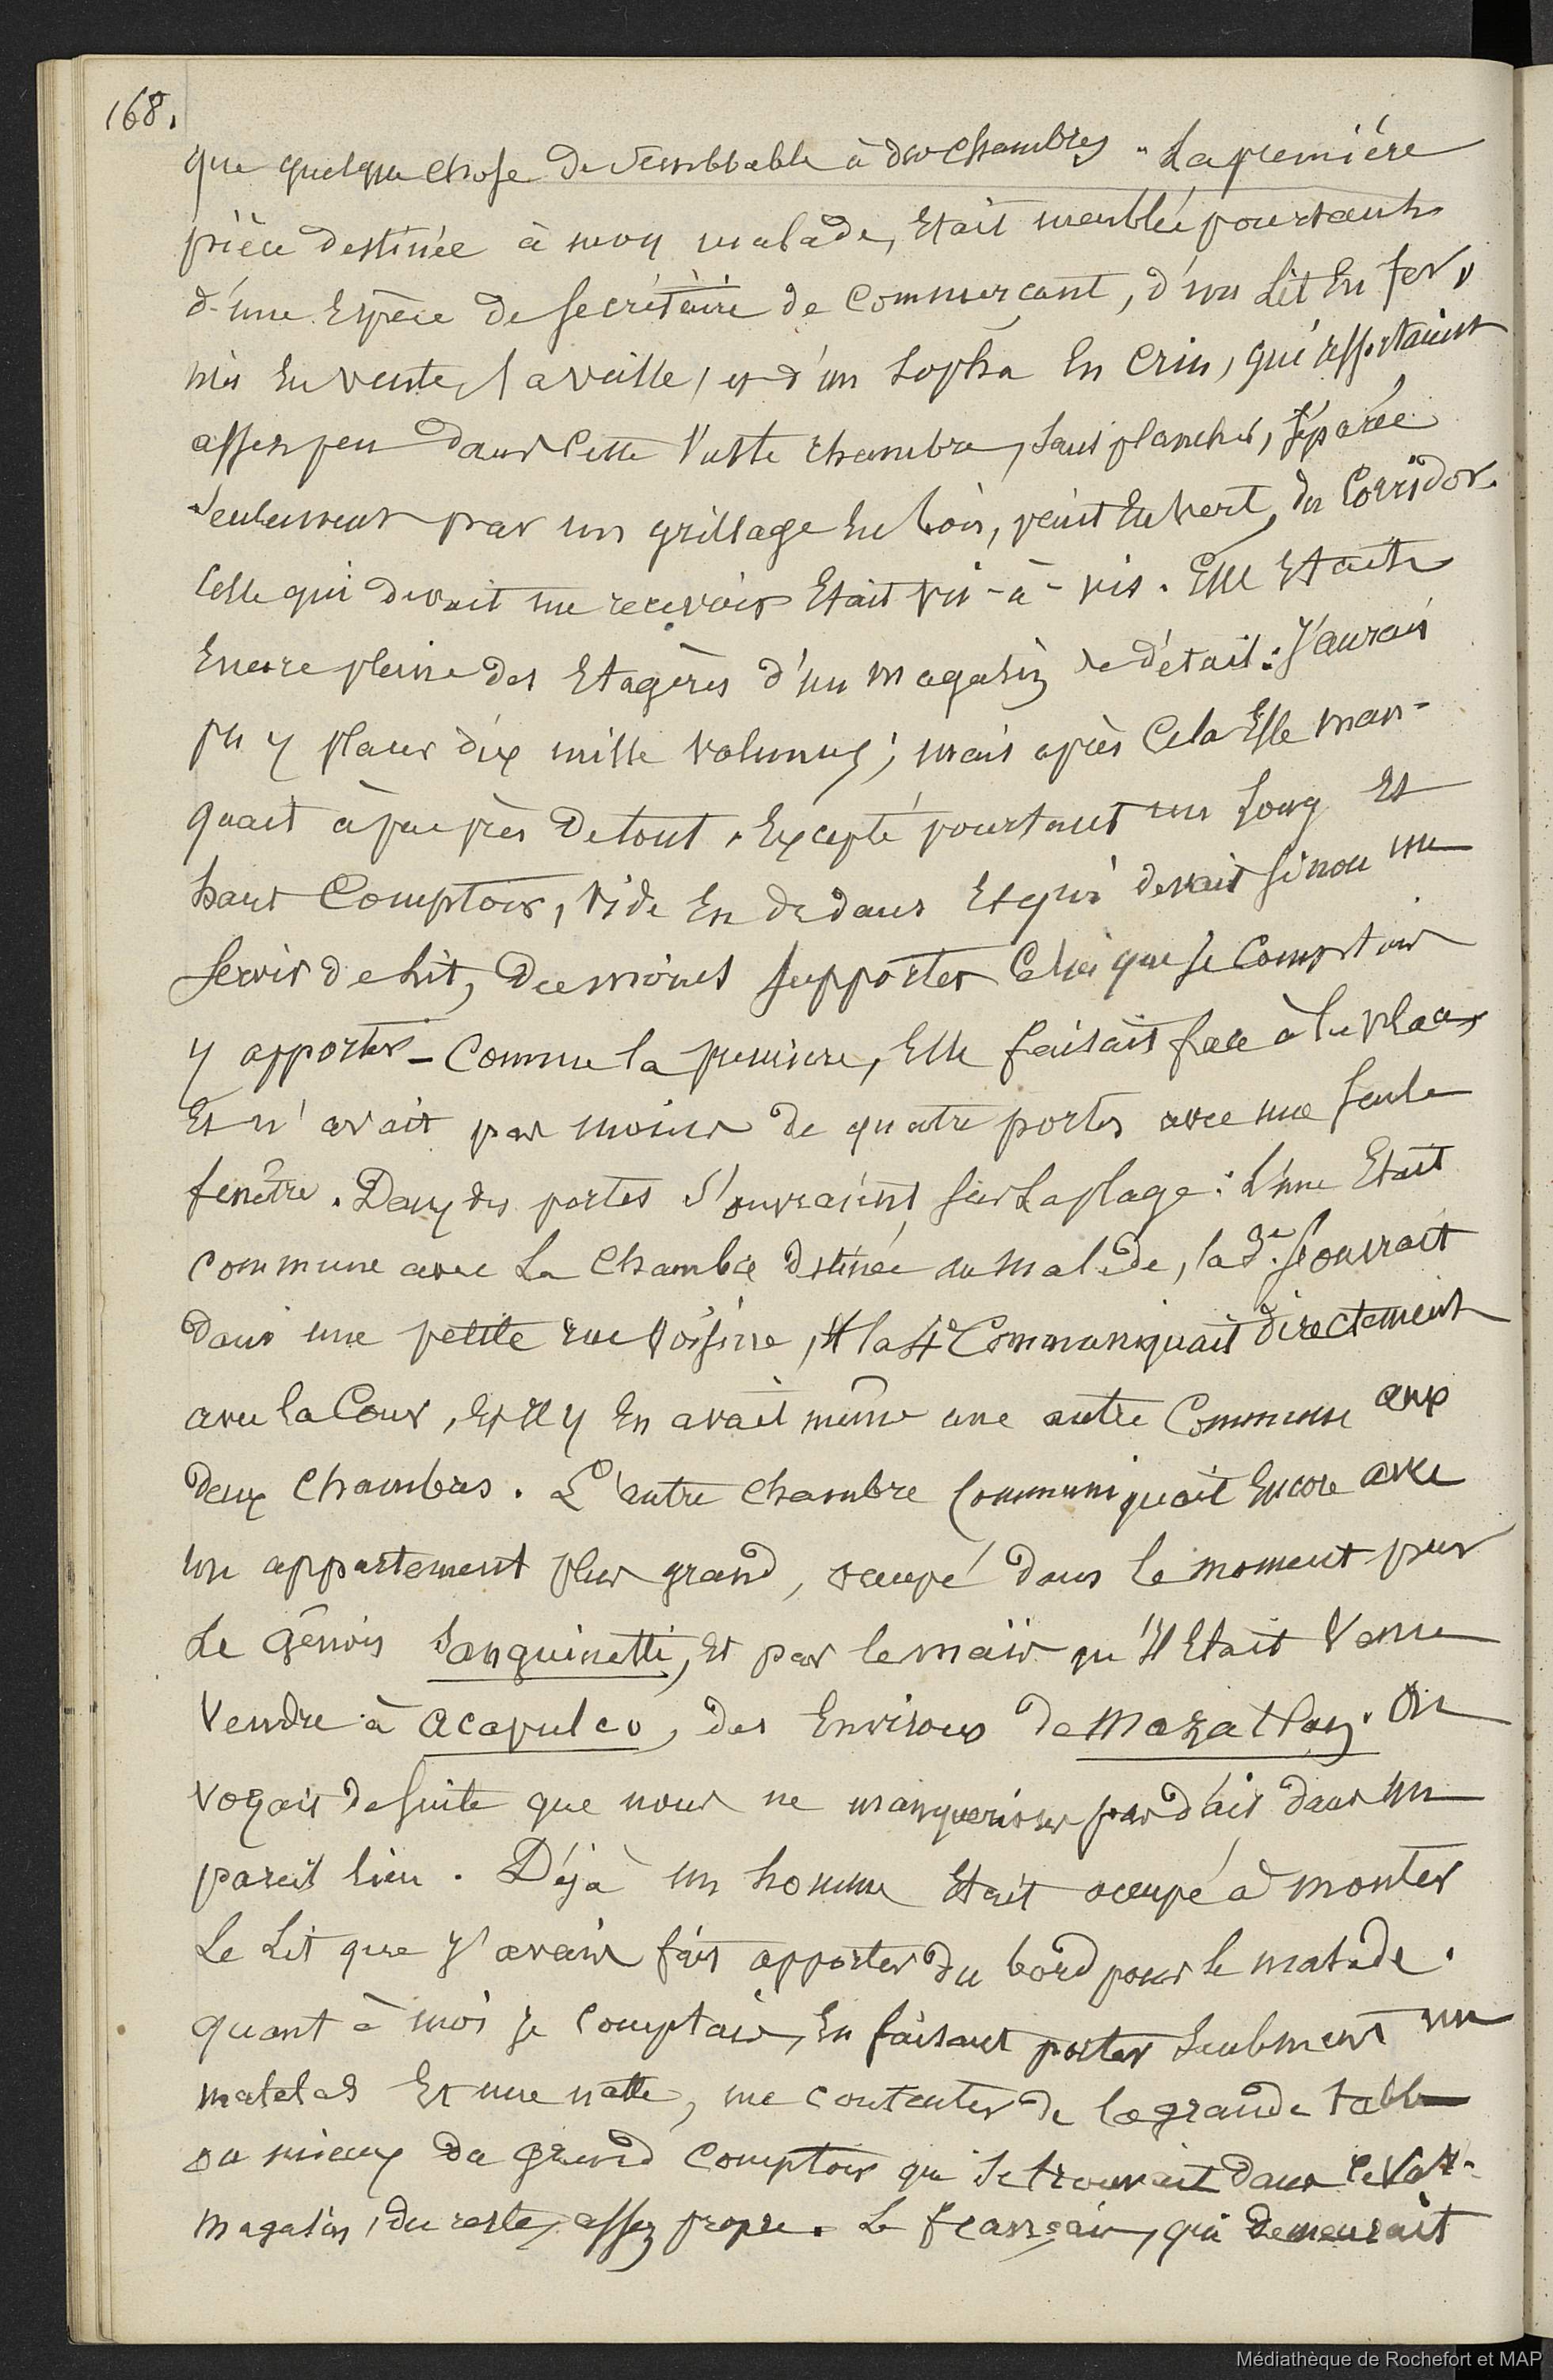 168.
que quelque chose de semblable à des chambres. La première
pièce destinée à mon malade, était meublée pourtant
d'une espèce de secrétaire de commerçant, d'un lit en fer,
mis en vente, la veille, et d'un sopha en crin, qui assortaient
assez peu dans cette vaste chambre, sans plancher, séparée
seulement par un grillage en bois, peint en vert, du corridor.
Celle qui devait me recevoir était vis-à-vis. Elle était
encore pleine des étagères d'un magasin de détail : j'aurais
pu y placer dix mille volumes ; mais après cela elle man-
quait à peu près de tout. Excepté pourtant un long et
haut comptoir, vide en dedans et qui devait sinon me
servir de lit, du moins supporter celui que je comptais
y apporter - Comme la première, elle faisait face à la place
et n'avait pas moins de quatre portes avec une seule
fenêtre. Deux des portes s'ouvraient sur la plage : l'une était
commune avec la chambre destinée au malade, la 3e s'ouvrait
dans une petite rue voisine, et la 4e communiquait directement
avec la cour, et il y en avait même une autre commune aux
deux chambres. L'autre chambre communiquait encore avec
un appartement plus grand, occupé dans le moment par
le Génois Sanguinetti, et par le maïs qu'il était venu
vendre à Acapulco, des environs de Mazatlan. On
voyait de suite que nous ne manquerions pas d'air dans un
pareil lieu. Déjà un homme était occupé à monter
le lit que j'avais fait apporter du bord pour le malade.
quant à moi je comptais, en faisant porter seulement un
matelas et une natte, me contenter de la grande table
ou mieux du grand comptoir qui se trouvait dans le
magasin, du reste, assez propre. Le français, qui demeurait
Médiathèque de Rochefort et MAP